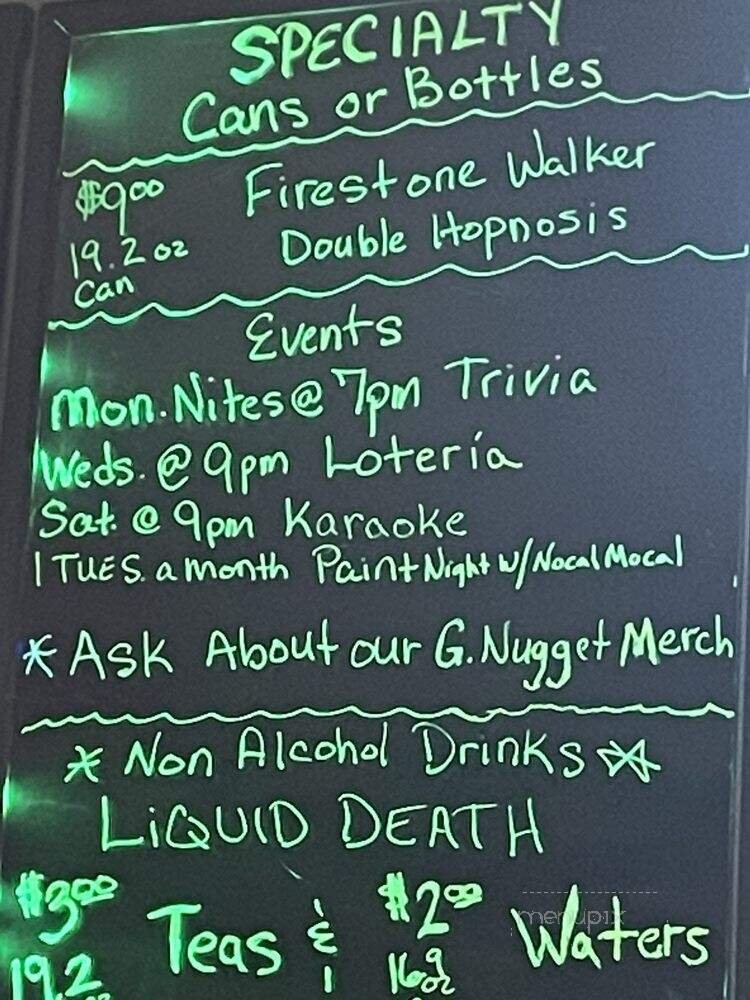 SPECIALTY
Cans or Bottles
$9.00 Firestone Walker
19.2 oz Double Hopnosis
Can
Events
Mon. Nites @ 7pm Trivia
Weds. @ 9pm Lotería
Sat. @ 9pm Karaoke
1 TUES. a month Paint Night w/ Nocal Mocal
*Ask About our G. Nugget Merch
* Non Alcohol Drinks *
LiQUID DEATH
$3.00 Teas & $2.00 Waters
19.2 oz 16.9 oz
menupix